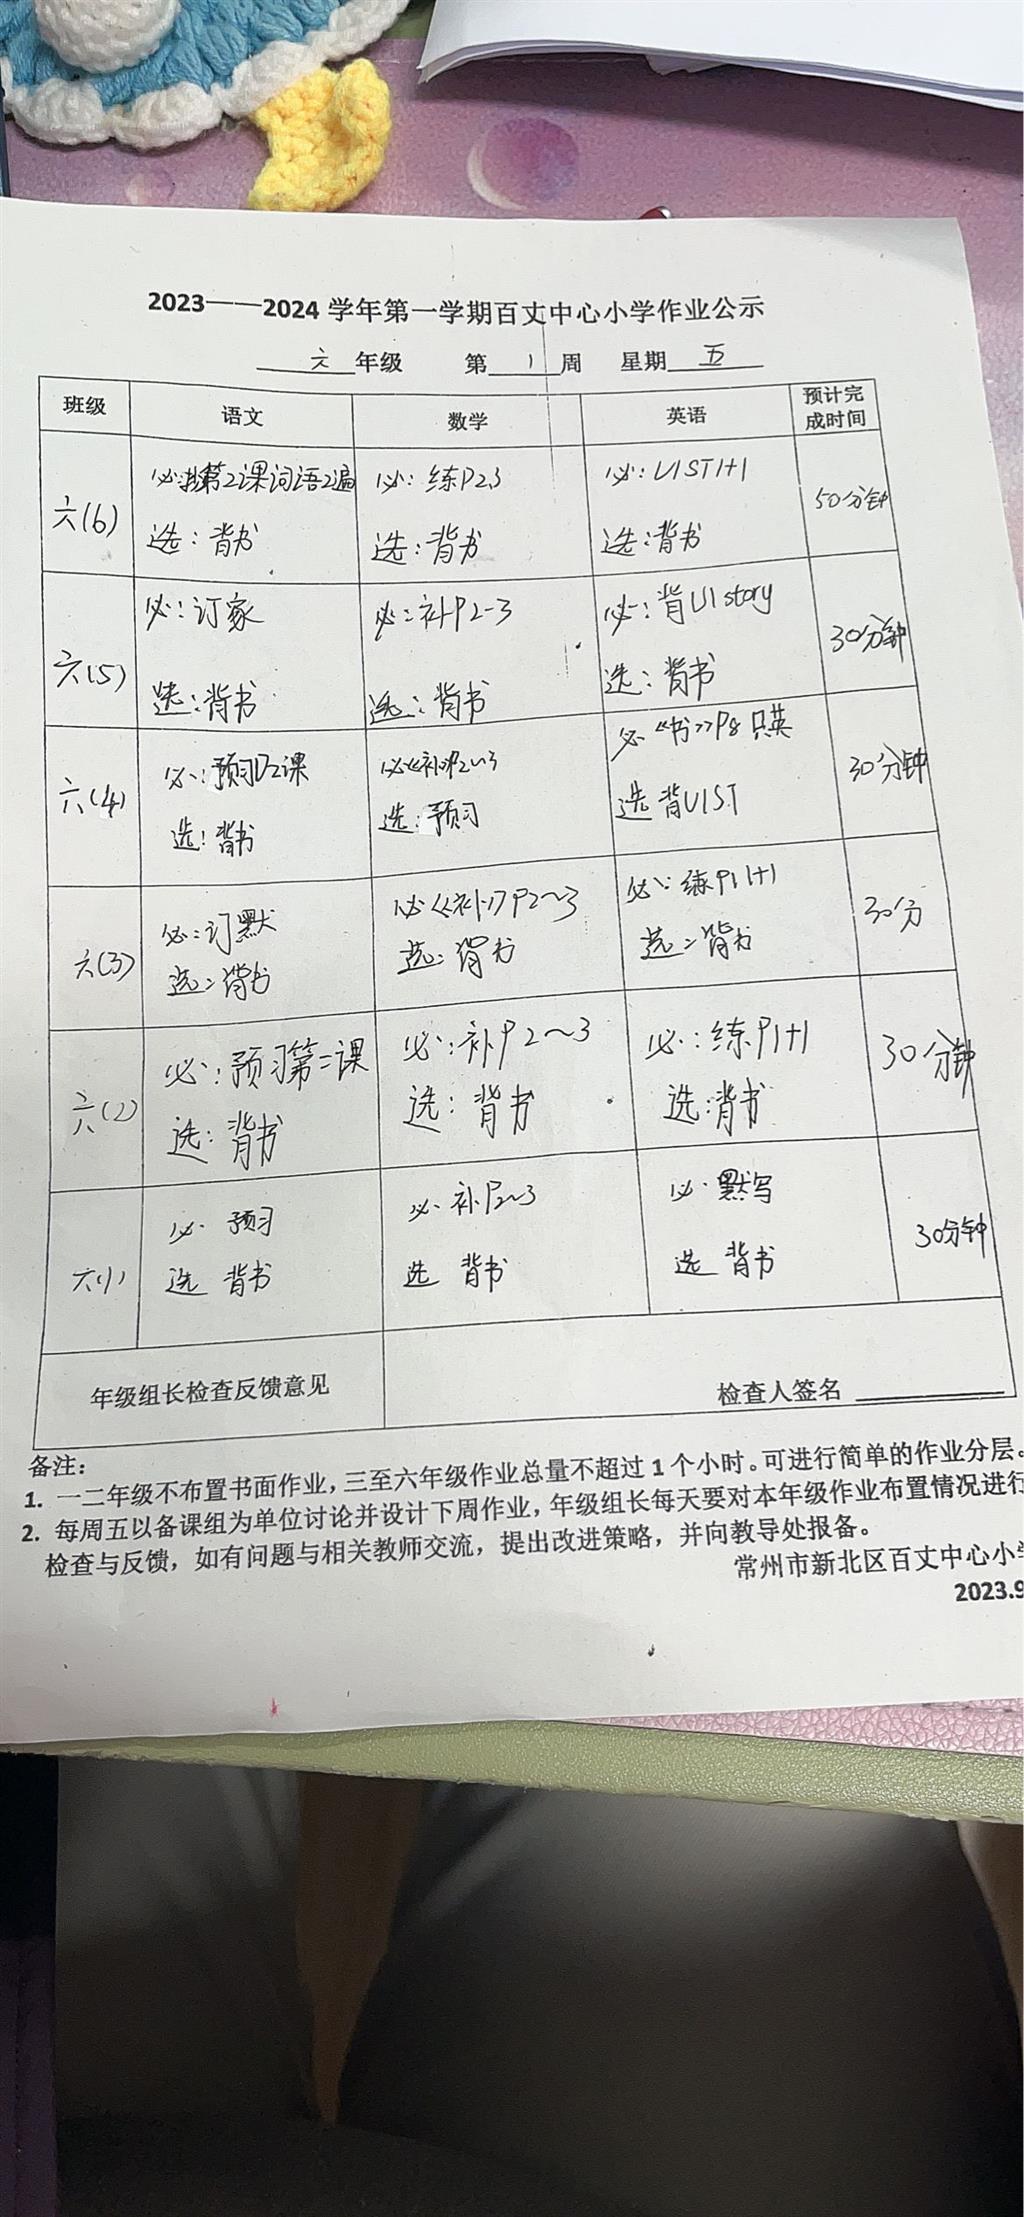 2023——2024 学年第一学期百丈中心小学作业公示
六 年级 第 1 周 星期 五
班级 语文 数学 英语 预计完成时间
六(6) 必:抄第2课词语2遍 必:练P2,3 必:U1ST1+1 50分钟
选:背书 选:背书 选:背书
六(5) 必:订家 必:补P2-3 必:背U1 story 30分钟
选:背书 选:背书 选:背书
六(4) 必:预习2课 必《补》P2~3 必《书》P8 只英 30分钟
选:背书 选:预习 选 背U1ST
六(3) 必:订默 必《补》P2~3 必:练P1 1+1 30分
选:背书 选:背书 选:背书
六(2) 必:预习第二课 必:补P2~3 必:练P1+1 30分钟
选:背书 选:背书 选:背书
六(1) 必 预习 必 补P2~3 必 默写 30分钟
选 背书 选 背书 选 背书
年级组长检查反馈意见 检查人签名
备注:
1. 一二年级不布置书面作业,三至六年级作业总量不超过 1 个小时。可进行简单的作业分层。
2. 每周五以备课组为单位讨论并设计下周作业,年级组长每天要对本年级作业布置情况进行
检查与反馈,如有问题与相关教师交流,提出改进策略,并向教导处报备。
常州市新北区百丈中心小学
2023.9